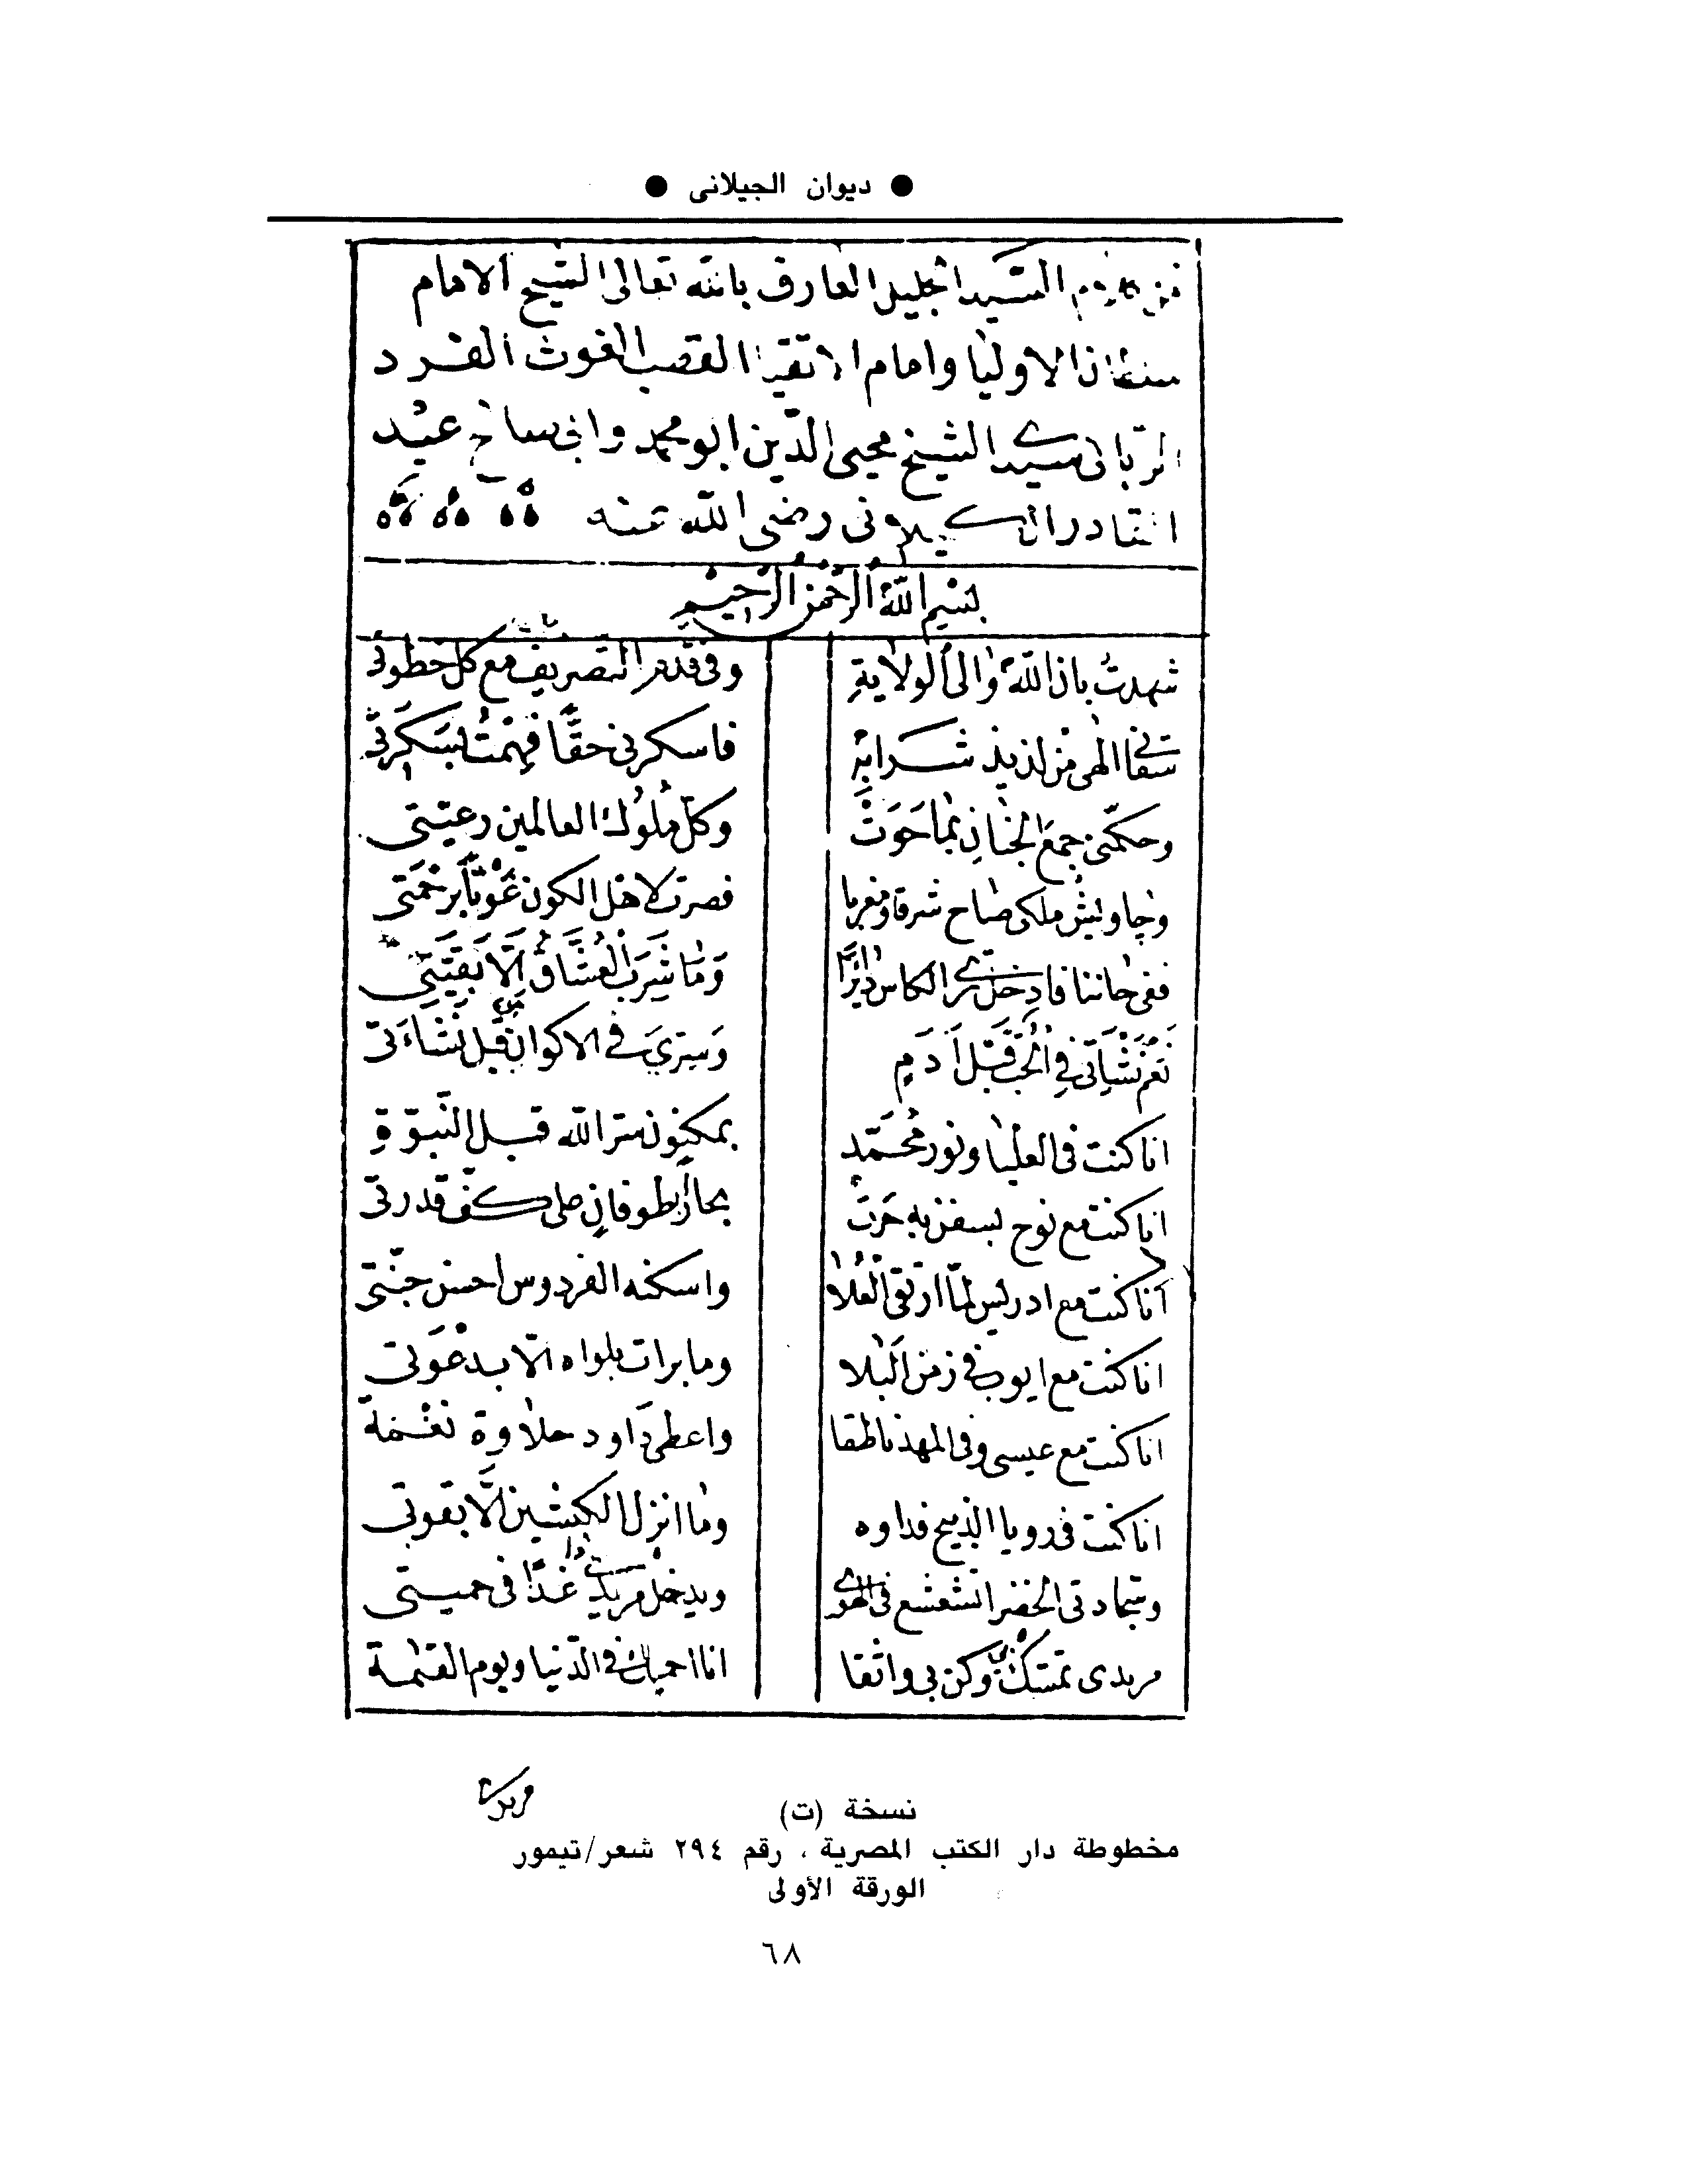 ● ديوان الجيلانى ●
من كلام السيد الجليل العارف بالله تعالى الشيخ الامام
سلطان الاوليا وامام الاتقيا القطب الغوث الفرد
الربانى سيدى الشيخ محيى الدّين ابو محمد وابى صالح عبد
القادر الكيلانى رضى الله عنه
بِسْمِ اللّهِ الرَّحْمنِ الرَّحِيمِ
شهدتُ بان اللّهَ وَالى الولايةِ وفى قدم التصريف مع كل خطوتى
سقانى الهى من لذيذ شرابهِ فاسكرنى حقًّا فهِمْتُ بسَكرتِى
وحكمّنى جمعَ الجنانِ بما حَوَتْ وكلّ ملوك العالمين رعيّتى
وجاويش ملكى صاح شرقا ومغربا فصرت لاهل الكون غَوْثًا برحمتى
ففى حاننا فادخل ترى الكاس دائرًا وَمَا شرِبَ العُشَّاقُ الَّا بَقِيَّتِى
نَعَمْ نَشْأتى فِى الحُبِّ قَبْلَ ادمٍ وَسِرّىَ فى الاكوان من قبل نَشْاَتى
انا كنت فى العليا ونور محمّد بمكنون سرّ اللّه قبل النّبوّةِ
انا كنت مع نوح بسفنزبه جَرَتْ بحارٌ بطوفانٍ على كفّ قدرتى
انا كنت مع ادريس لمّا ارتقى العُلا واسكنه الفردوس احسن جنّتى
انا كنت مع ايوب فى زمن البَلا وما برات بلواه الّا بدعْوَتى
انا كنت مع عيسى وفى المهد ناطقا واعطى داود حلاوة نغْمة
انا كنت فى رويا الذبيح فداوه وما انزل الكبشين الَّا بقوتى
وسجّادتى الخضرا تشعشع فى الهوى ويدخل مريدى غدًا فى حميتى
مريدى تمسّك بى وكن بى واثقا انا احميك فى الدّنيا ويوم القيمة
مريدى
نسخة (ت)
مخطوطة دار الكتب المصرية ، رقم ٢٩٤ شعر/تيمور
الورقة الأولى
٦٨